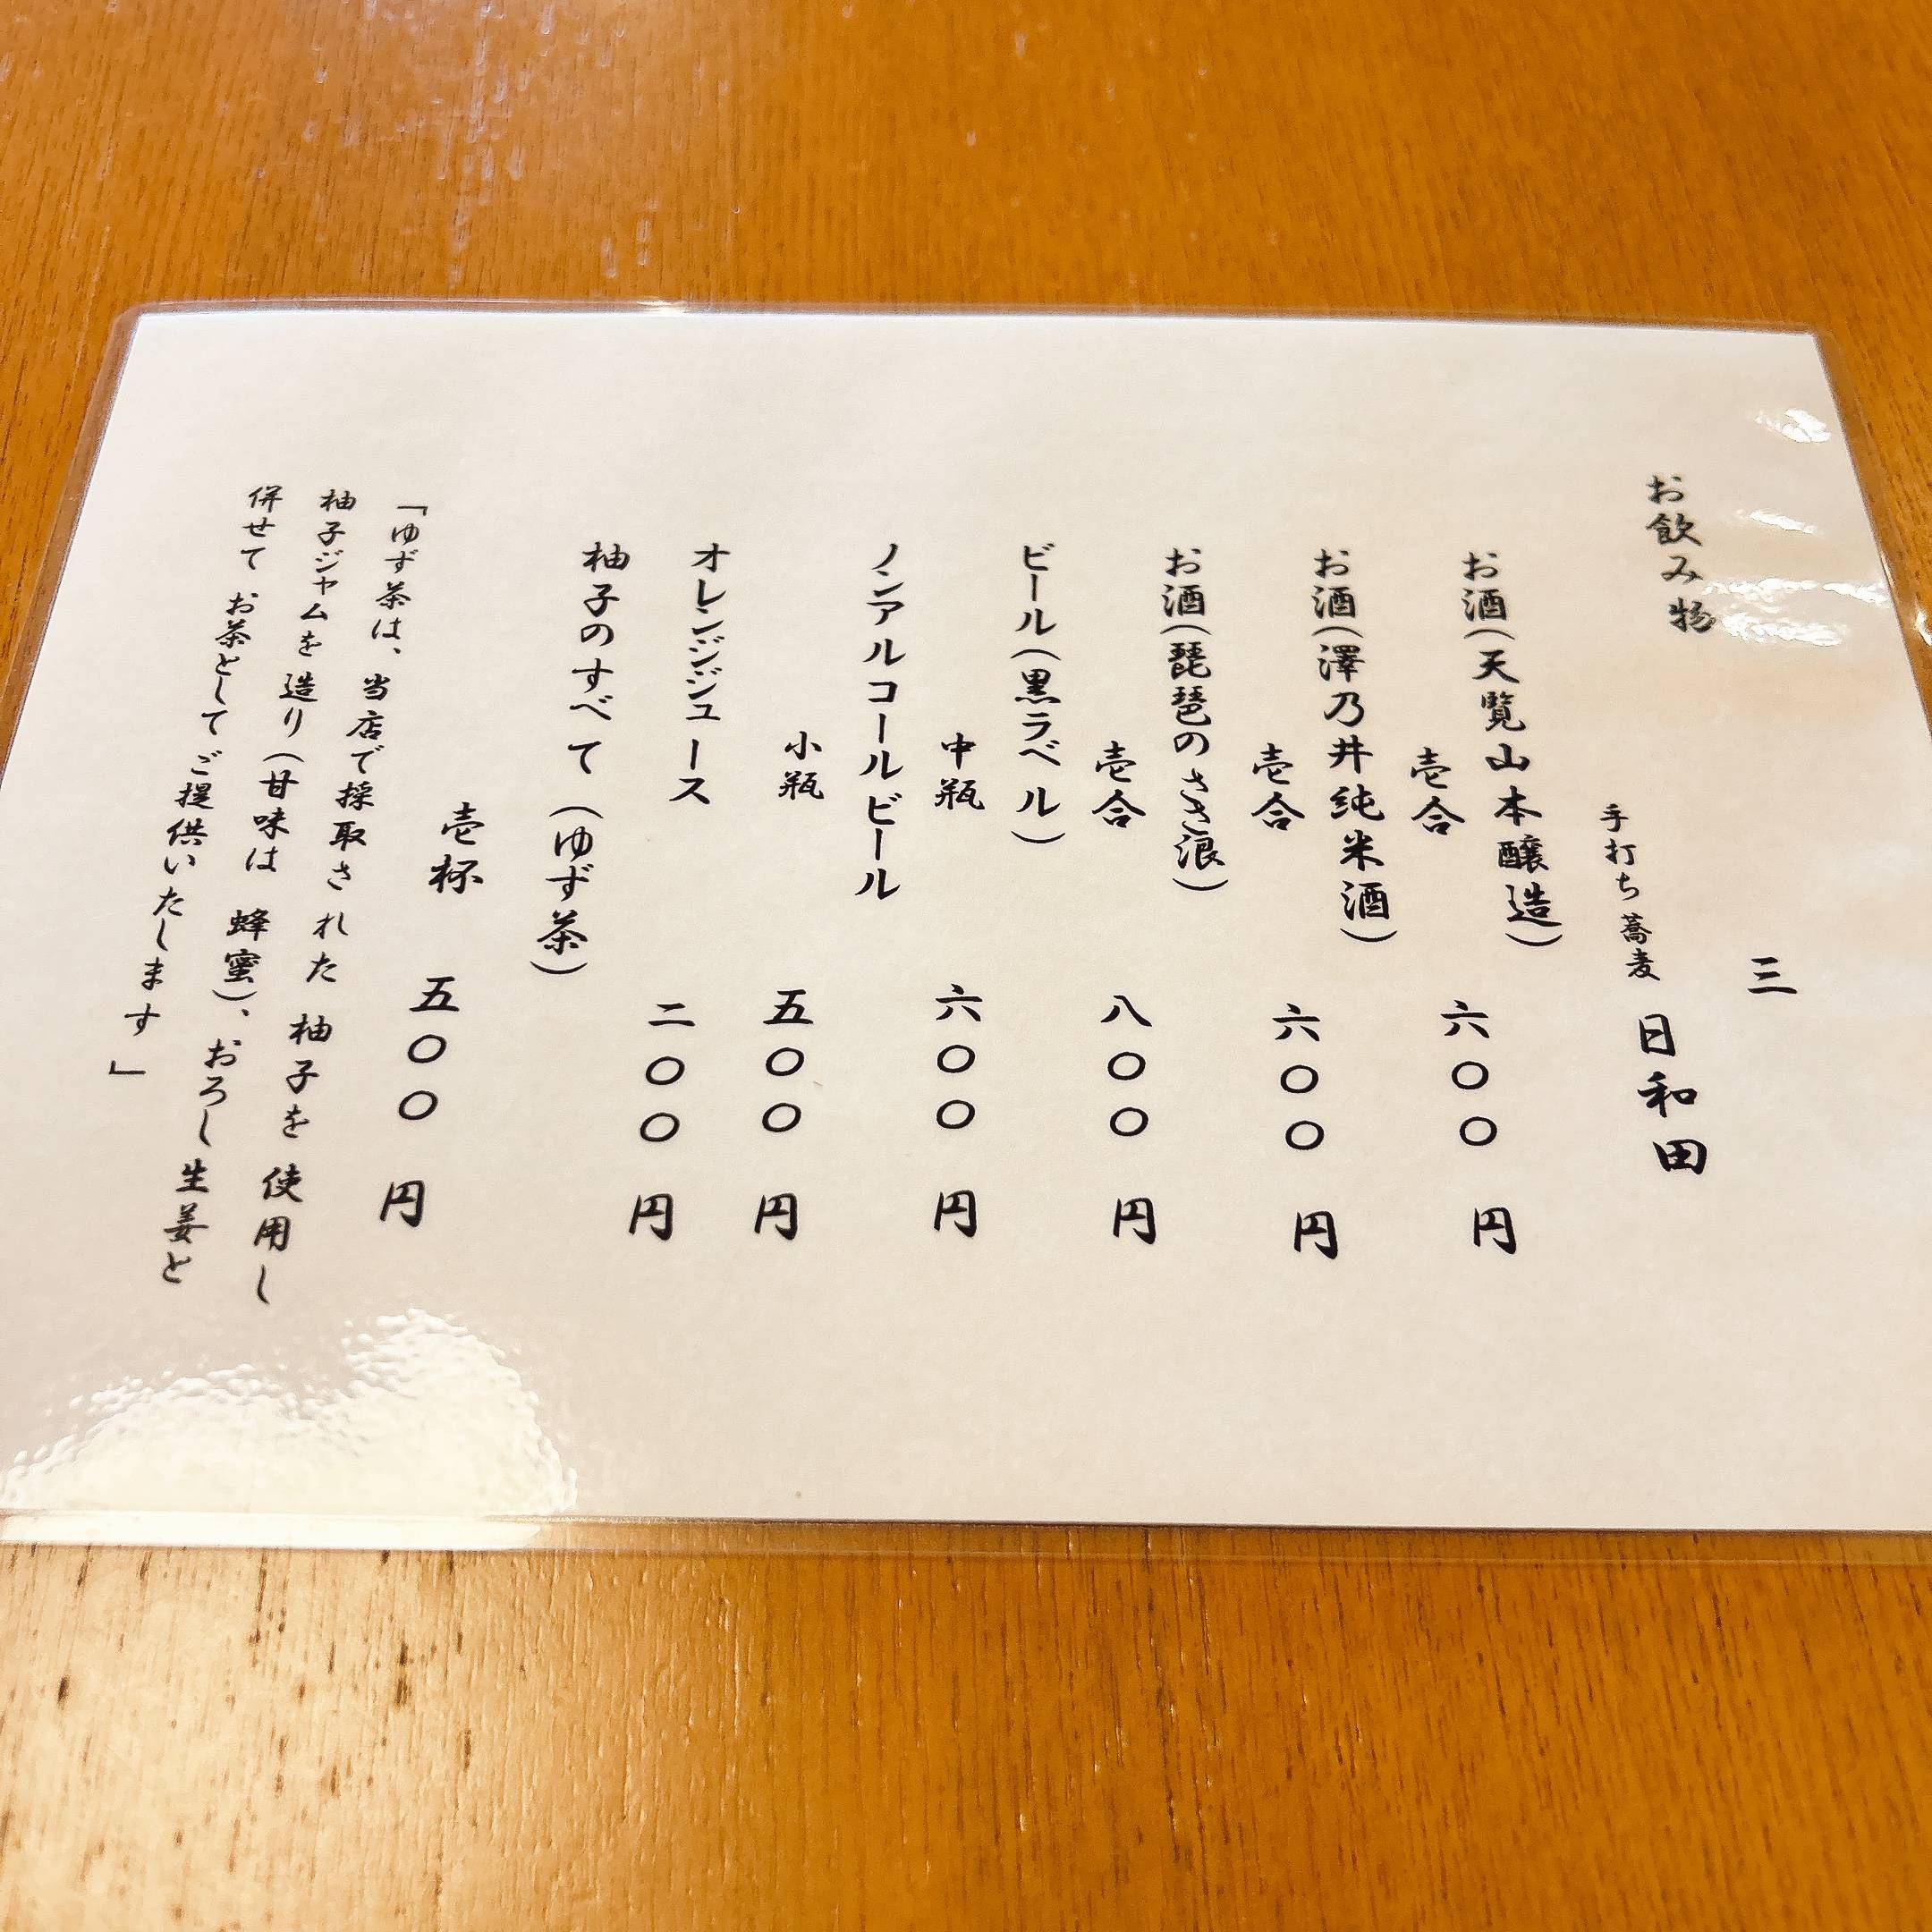 三
お飲み物
手打ち蕎麦 日和田
お酒(天覧山本醸造)
壱合 六〇〇円
お酒(澤乃井純米酒)
壱合 六〇〇円
お酒(琵琶のささ浪)
壱合 八〇〇円
ビール(黒ラベル)
中瓶 六〇〇円
ノンアルコールビール
小瓶 五〇〇円
オレンジジュース 二〇〇円
柚子のすべて(ゆず茶)
壱杯 五〇〇円
「ゆず茶は、当店で採取された柚子を使用し
柚子ジャムを造り(甘味は 蜂蜜)、おろし生姜と
併せて お茶として ご提供いたします」